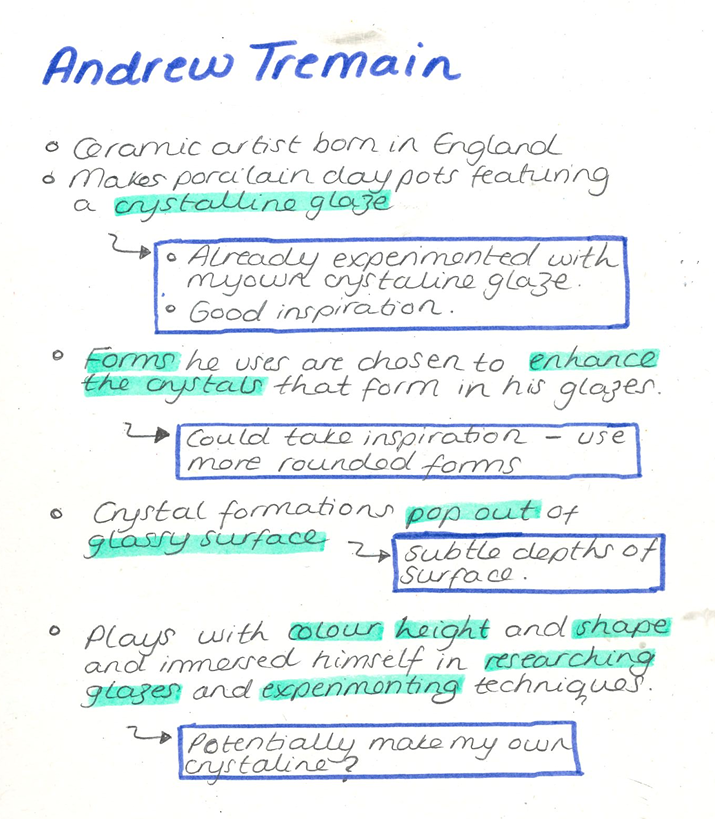 Andrew Tremain
Ceramic artist born in England
Makes porcilain clay pots featuring
a crystalline glaze
Already experimented with
my own crystaline glaze.
Good inspiration.
Forms he uses are chosen to enhance
the crystals that form in his glazes.
Could take inspiration – use
more rounded forms
Crystal formations pop out of
glassy surface
subtle depths of
surface.
Plays with colour height and shape
and immersed himself in researching
glazes and experimenting techniques.
Potentially make my own
crystaline?